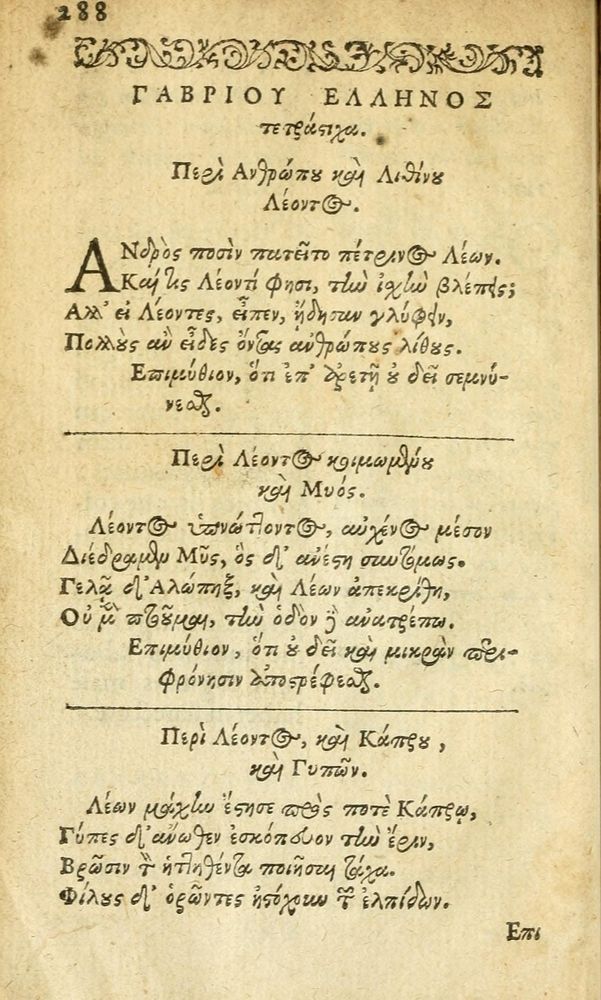 288
ΓΑΒΡΙΟΥ ΕΛΛΗΝΟΣ
τετράστιχα.
Περὶ Ανθρώπου καὶ Λιθίνου
Λέοντος.
ΑΝδρὸς ποσὶν πατεῖτο πέτρινος Λέων.
Καί τις Λέοντί φησι, τὴν ἰχὺν βλέπεις;
Αλλ' εἰ Λέοντες, εἶπεν, ᾔδησαν γλύφειν,
Πολλοὺς ἂν εἶδες ὄντας ἀνθρώπους λίθους.
Επιμύθιον, ὅτι ἐπ' ἀρετῇ οὐ δεῖ σεμνύ-
νεσθαι.
Περὶ Λέοντος κοιμωμένου
καὶ Μυός.
Λέοντος ὑπνώττοντος, αὐχένος μέσον
Διέδραμεν Μῦς, ὃς δ' ἀνέστη συντόμως.
Γελᾷ δ' Αλώπηξ, καὶ Λέων ἀπεκρίθη,
Οὐ μῦν πτοοῦμαι, τὴν ὁδὸν δὲ ἀνατρέπω.
Επιμύθιον, ὅτι οὐ δεῖ καὶ μικρὰν περι-
φρόνησιν ἀποστρέφεσθαι.
Περὶ Λέοντος, καὶ Κάπρου,
καὶ Γυπῶν.
Λέων μάχην ἔστησε πρὸς ποτὲ Κάπρῳ,
Γύπες δ' ἄνωθεν ἐσκόπευον τὴν ἔριν,
Βρῶσιν τὸν ἡττηθέντα ποιῆσαι τάχα.
Φίλους δ' ὁρῶντες ἠστόχουν τῶν ἐλπίδων.
Επι